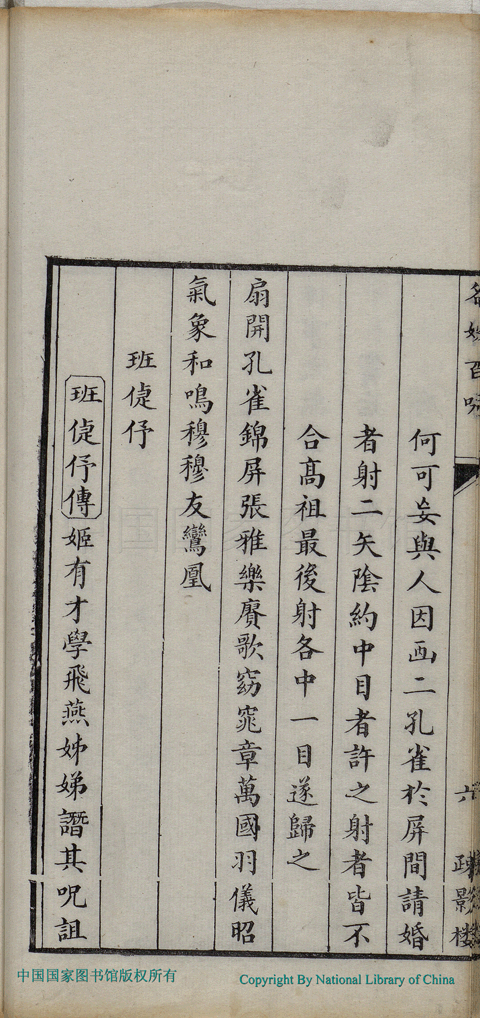 名姓百咏
六
疎影楼
何可妄與人因画二孔雀於屏間請婚
者射二矢陰約中目者許之射者皆不
合高祖最後射各中一目遂歸之
扇開孔雀錦屏張雅樂賡歌窈窕章萬國羽儀昭
氣象和鳴穆穆友鸞凰
班倢伃
班倢伃傳姬有才學飛燕姊娣譖其呪詛
中国国家图书馆版权所有
Copyright By National Library of China